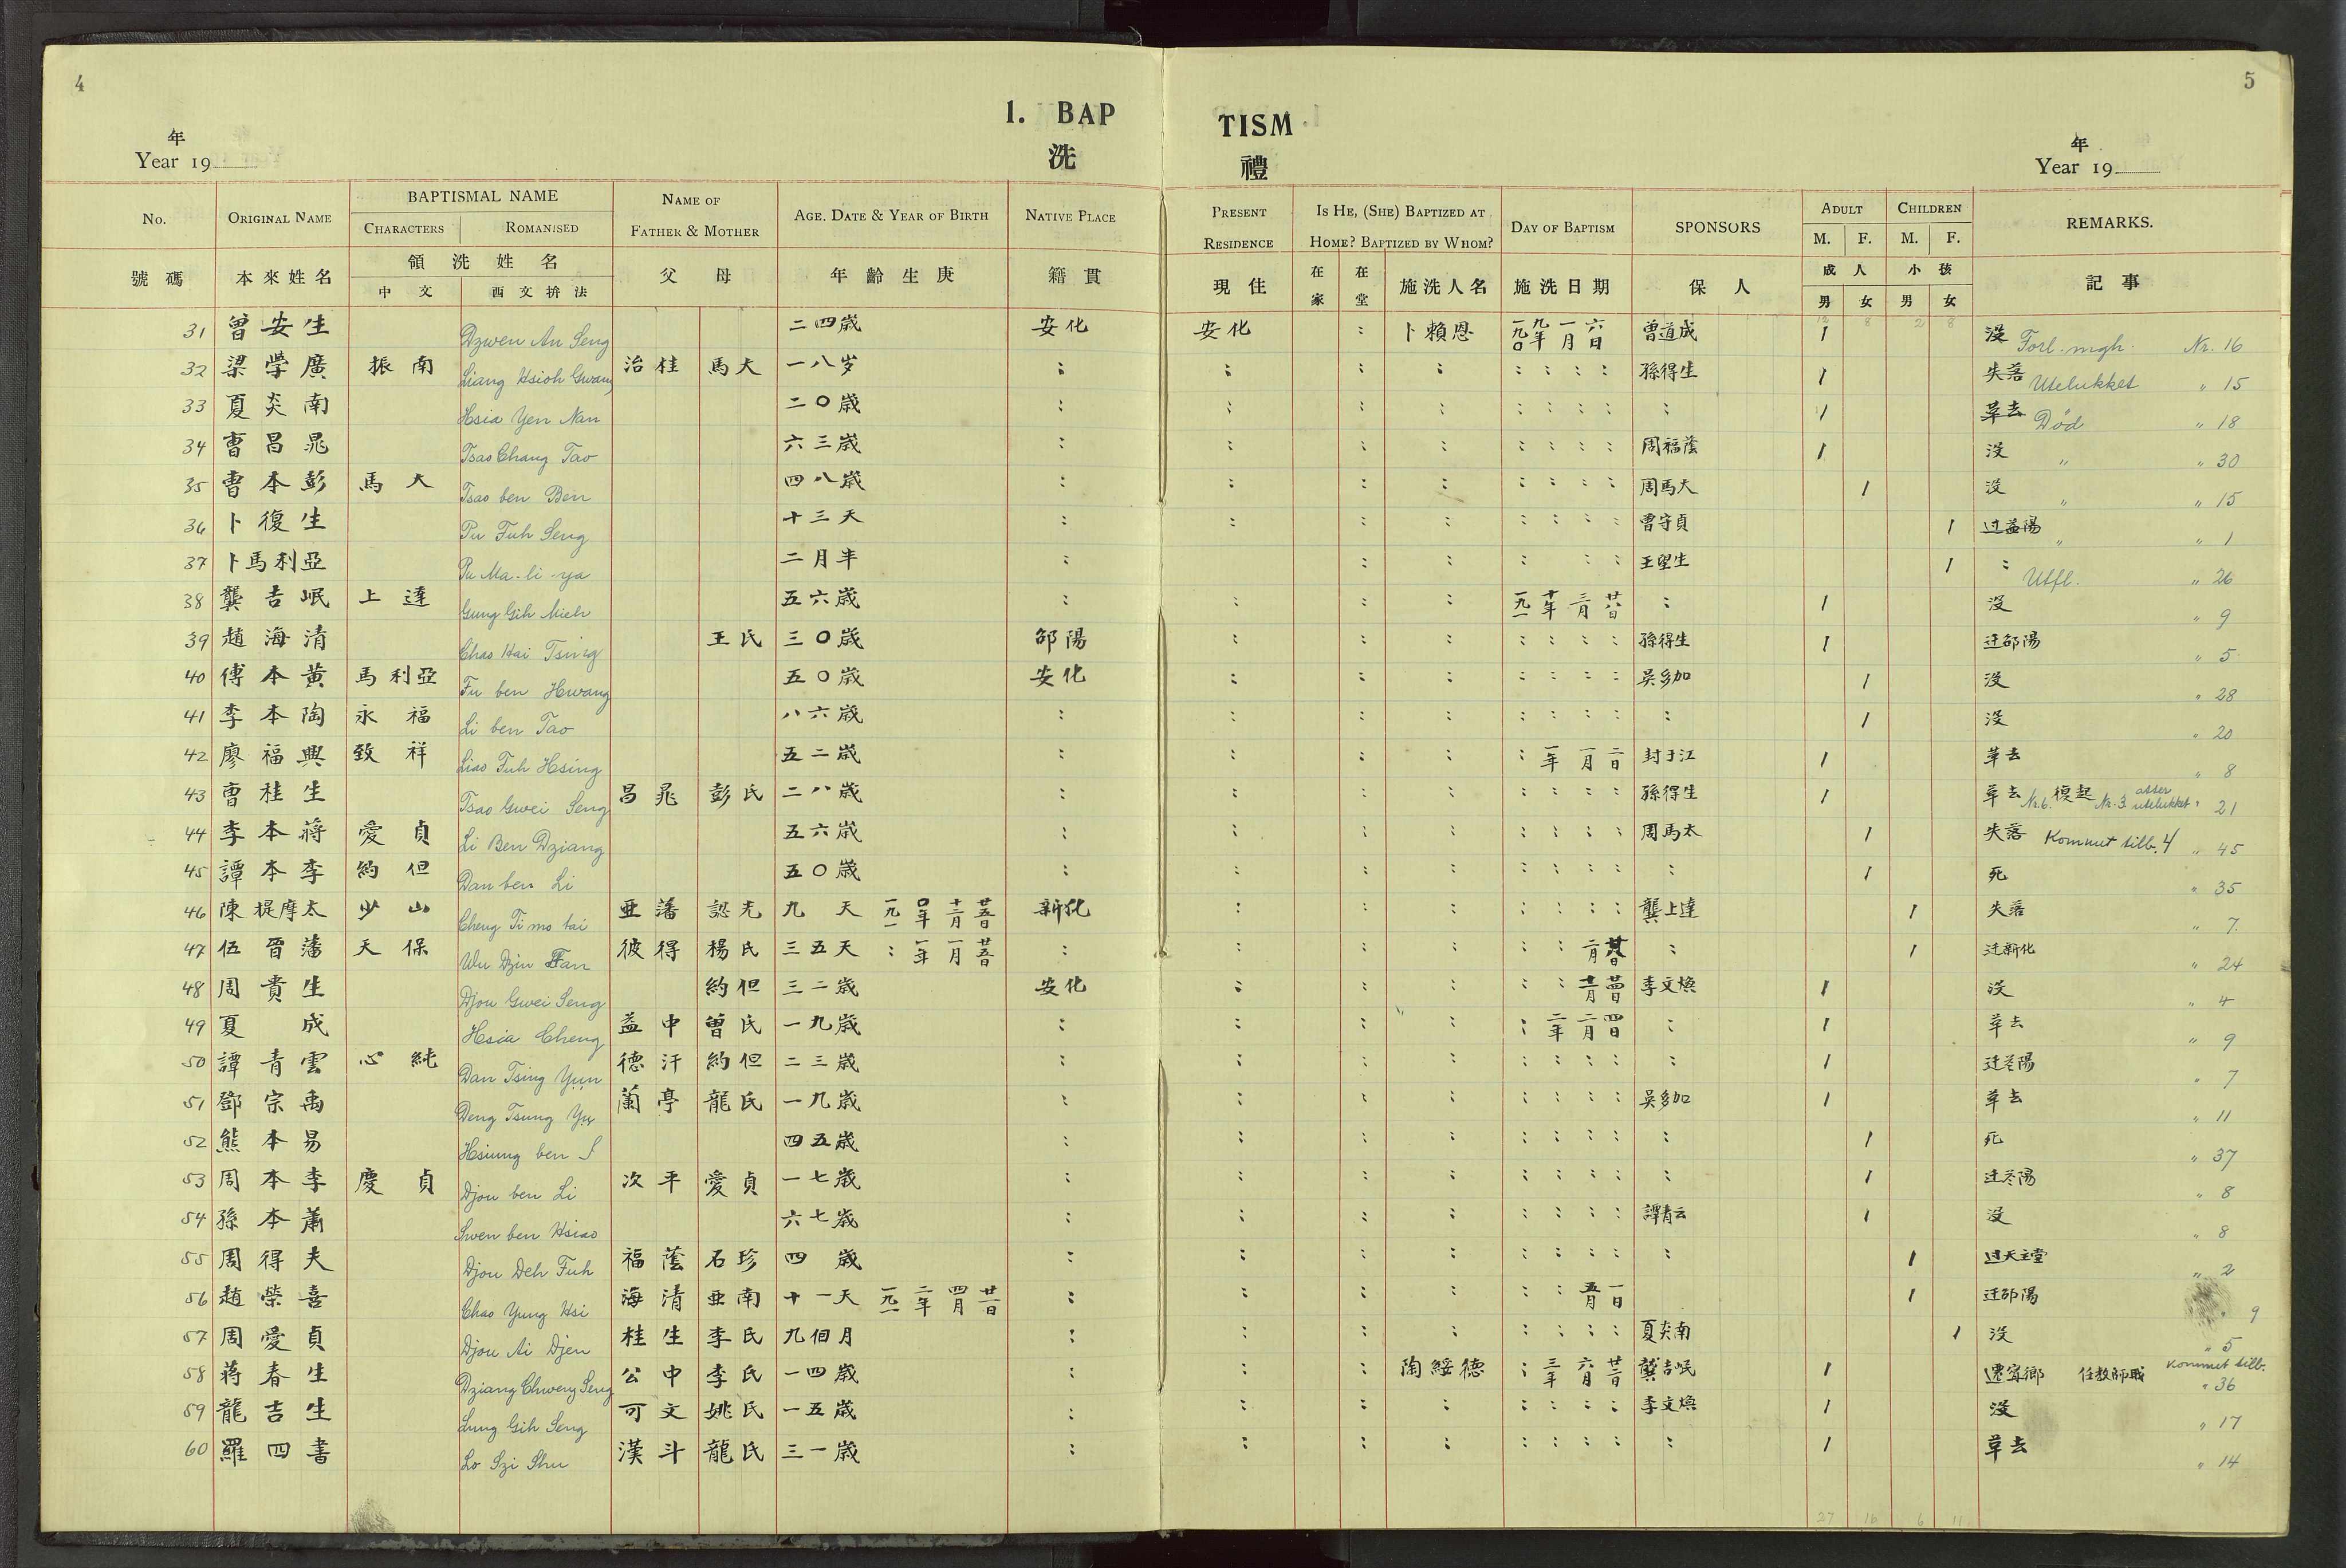 4
5
1. BAP
TISM
洗
禮
年
Year 19
年
Year 19
No.
ORIGINAL NAME
BAPTISMAL NAME
CHARACTERS
ROMANISED
NAME OF
FATHER & MOTHER
AGE. DATE & YEAR OF BIRTH
NATIVE PLACE
PRESENT
RESIDENCE
IS HE, (SHE) BAPTIZED AT
HOME? BAPTIZED BY WHOM?
DAY OF BAPTISM
SPONSORS
ADULT
M. F.
CHILDREN
M. F.
REMARKS.
號碼 本來姓名 領洗姓名 中文 西文拚法 父母 年齡生庚 籍貫 現住 在家 在堂 施洗人名 施洗日期 保人 成人 男 女 小孩 男 女 記事
12 8 2 8
31 曾安生 Dzwen An Seng 二四歲 安化 安化 : 卜賴恩 一九一〇年 一月 六日 曾道成 1 沒 Forl. mgh. Nr. 16
32 梁學廣 振南 Liang Hsioh Gwang 治桂 馬大 一八岁 : : : : : : : : 孫得生 1 失落 Utelukket " 15
33 夏炎南 Hsia Yen Nan 二〇歲 : : : : : : : : : 1 革去 Död " 18
34 曹昌晁 Tsao Chang Tao 六三歲 : : : : : : : : 周福蔭 1 沒 " " 30
35 曹本彭 馬大 Tsao ben Ben 四八歲 : : : : : : : : 周馬大 1 沒 " " 15
36 卜復生 Pu Fuh Seng 十三天 : : : : : : : : 曹守貞 1 过益陽 " " 1
37 卜馬利亞 Pu Ma-li-ya 二月半 : : : : : : 王望生 1 : Utfl. " 26
38 龔吉岷 上達 Gung Gih Mieh 五六歲 : : : : 一九一 十年 三月 廿六日 : 1 沒 " 9
39 趙海清 Chao Hai Tsing 王氏 三〇歲 邵陽 : : : : : : : 孫得生 1 迁邵陽 " 5
40 傅本黃 馬利亞 Fu ben Hwang 五〇歲 安化 : : : : : : : 吳多加 1 沒 " 28
41 李本陶 永福 Li ben Tao 八六歲 : : : : : : : : : 1 沒 " 20
42 廖福興 致祥 Liao Fuh Hsing 五二歲 : : : : : 一年 一月 二日 封于江 1 革去 " 8
43 曹桂生 Tsao Gwei Seng 昌晁 彭氏 二八歲 : : : : : : : : 孫得生 1 革去 Nr. 6. 復起 Nr. 3 atter utelukket " 21
44 李本蔣 愛貞 Li Ben Dziang 五六歲 : : : : : : : : 周馬太 1 失落 Kommet tilb. 4 " 45
45 譚本李 約但 Dan ben Li 五〇歲 : : : : : : : : : 1 死 " 35
46 陳提摩太 少山 Cheng Ti mo tai 亞藩 認光 九天 一九一 〇年 十二月 廿五日 新化 : : : : : : : 龔上達 1 失落 " 7.
47 伍晉藩 天保 Wu Dzin Fan 彼得 楊氏 三五天 : 一年 一月 廿五日 : : : : : : 二月 廿八日 : 1 迁新化 " 24
48 周貴生 Djou Gwei Seng 約但 三二歲 安化 : : : : : 李文煥 1 沒 " 4
49 夏成 Hsia Cheng 益中 曾氏 一九歲 : : : : : 二年 二月 四日 : 1 革去 " 9
50 譚青雲 心純 Dan Tsing Yün 德汗 約但 二三歲 : : : : : : : : : 1 迁益陽 " 7
51 鄧宗禹 Deng Tsung Yü 蘭亭 龍氏 一九歲 : : : : : : : : 吳多加 1 革去 " 11
52 熊本易 Hsiung ben I 四五歲 : : : : : : : : : 1 死 " 37
53 周本李 慶貞 Djou ben Li 次平 愛貞 一七歲 : : : : : : : : : 1 迁益陽 " 8
54 孫本蕭 Swen ben Hsiao 六七歲 : : : : : : : : 譚青云 1 沒 " 8
55 周得夫 Djou Deh Fuh 福蔭 石珍 四歲 : : : : : : : : : 1 过天主堂 " 2
56 趙榮喜 Chao Yung Hsi 海清 亜南 十一天 一九一 二年 四月 廿一日 : : : : : : 五月 一日 1 迁邵陽 " 9
57 周愛貞 Djou Ai Djen 桂生 李氏 九個月 : : : : : : : : 夏炎南 1 沒 " 5
58 蔣春生 Dziang Chweng Seng 公中 李氏 一四歲 : : : 陶綏德 : 三年 六月 廿二日 龔吉岷 1 遷甯鄉 任教師職 Kommet tilb. " 36
59 龍吉生 Lung Gih Seng 可文 姚氏 一五歲 : : : : : : : : 李文煥 1 沒 " 17
60 羅四書 Lo Szi Shu 漢斗 龍氏 三一歲 : : : : : : : : : 1 革去 " 14
27 16 6 11